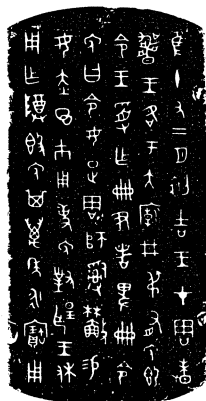 隹十又二月初吉王才周昧
喪王各于大廟井弔又免即
令王受乍冊尹者卑冊令
免曰令女疋周師𤔲
女赤巿用事免對揚王休
用乍𣪘免其萬年永寶用